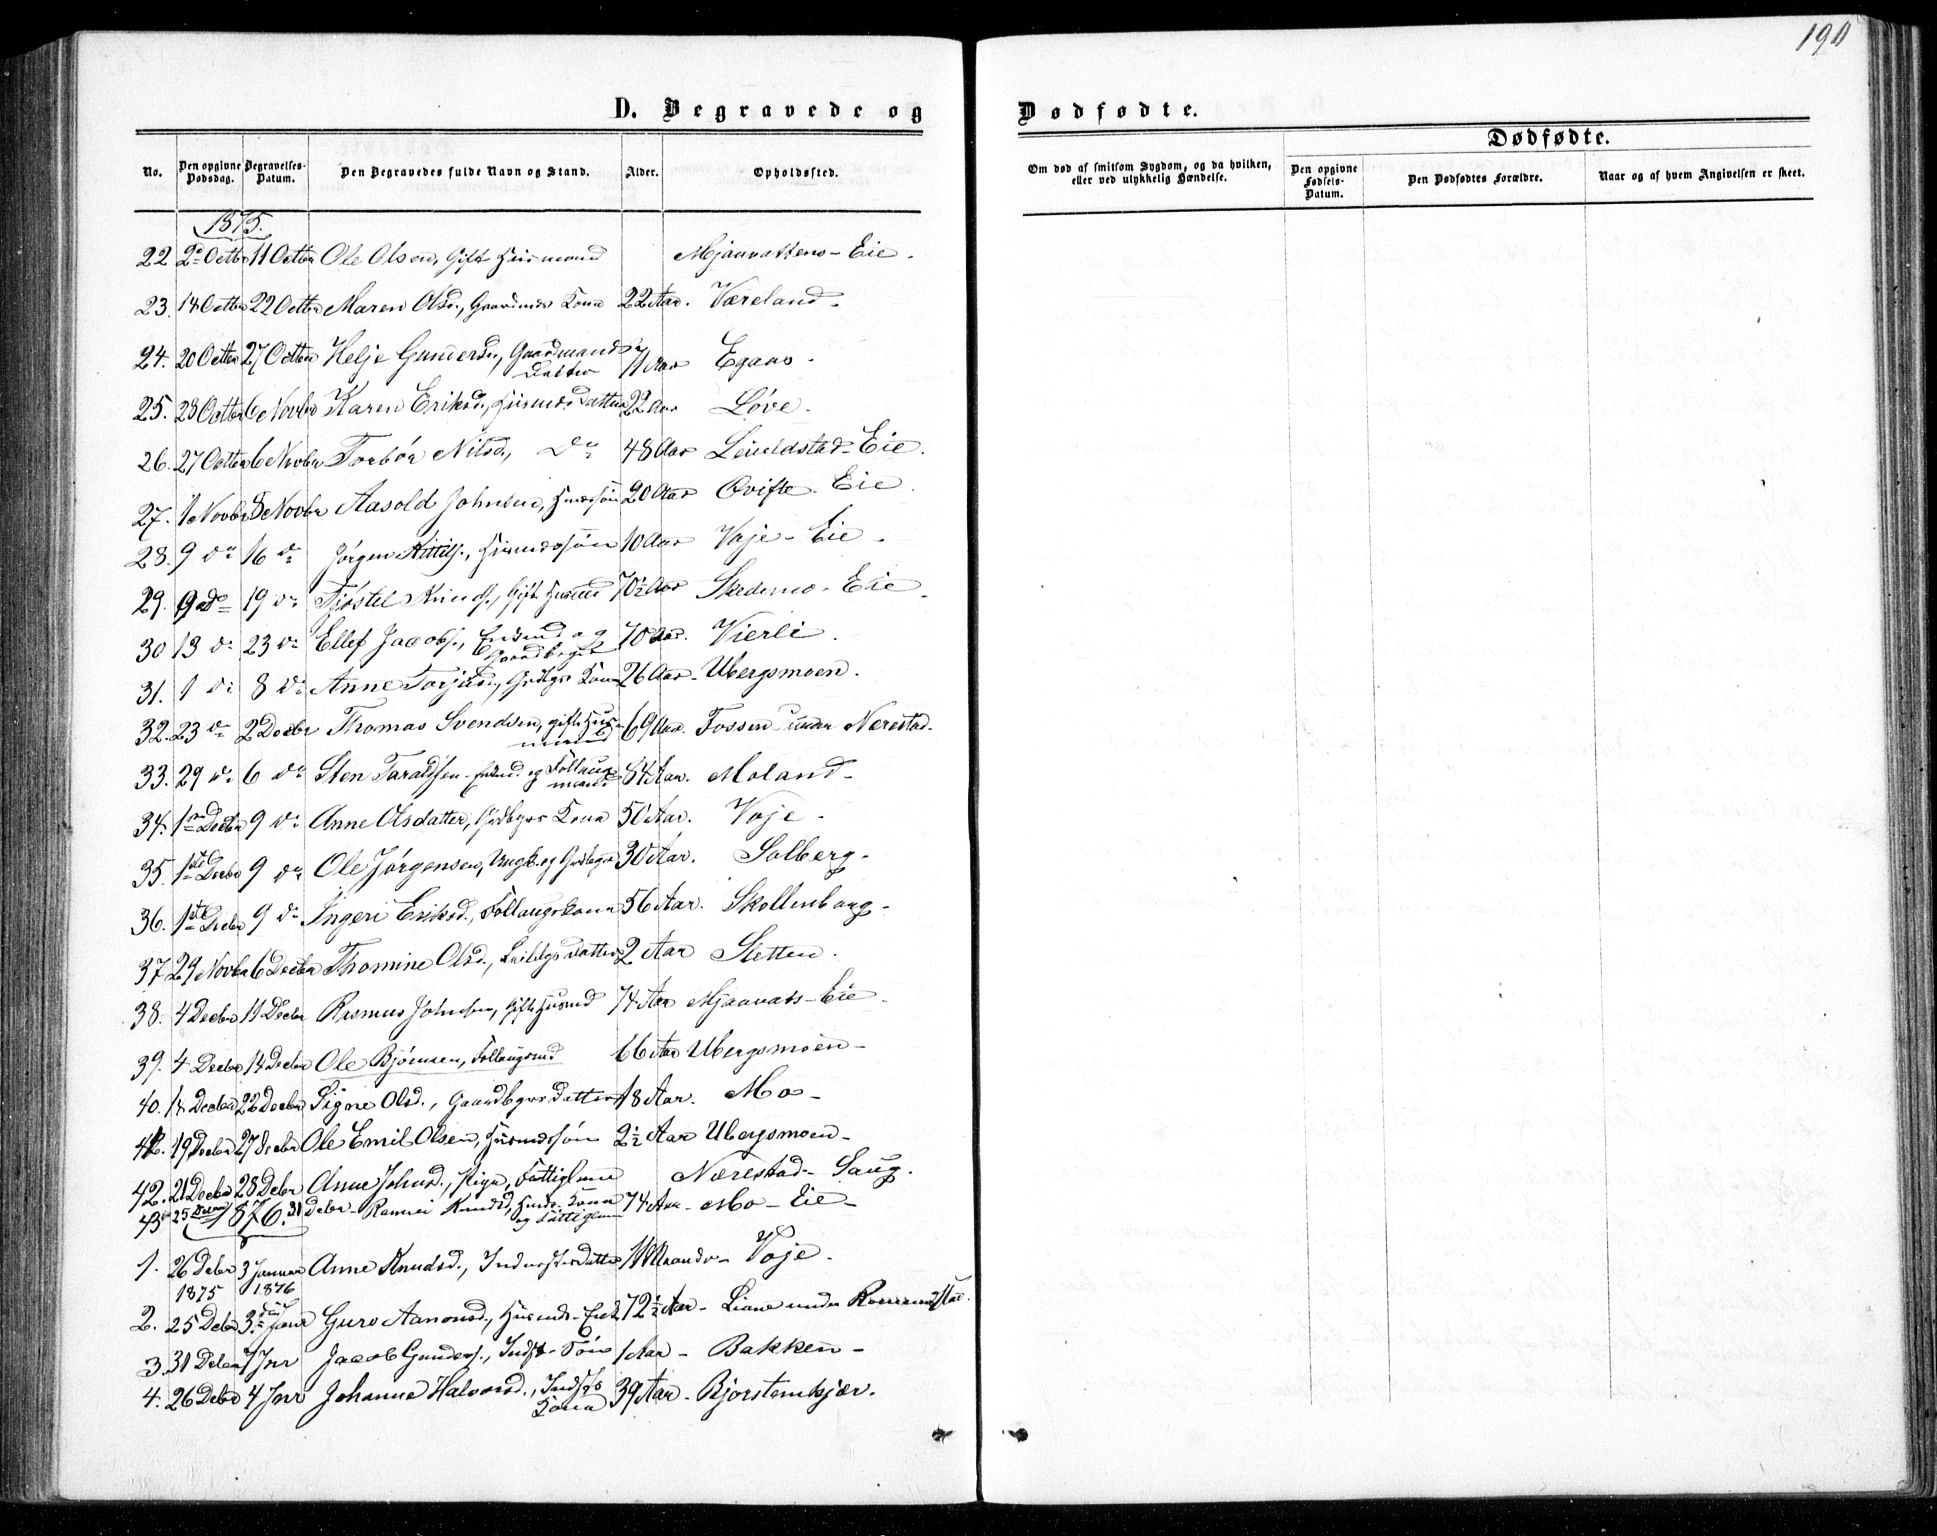 190
D. Begravede og
Dødfødte.
Dødfødte.
No.
Den opgivne Dødsdag.
Begravelses-Datum.
Den Begravedes fulde Navn og Stand.
Alder.
Opholdssted.
Om død af smitsom Sygdom, og da hvilken, eller ved ulykkelig Hændelse.
Den opgivne Fødsels-Datum.
Den Dødfødtes Forældre.
Naar og af hvem Angivelsen er skeet.
1875.
22 2den Octbr 11 Octbr Ole Olsen, Gift Husmand Mjaavattens-Eie.
23. 14 Octbr 22 Octbr Maren Olsd., Kone 22 Aar. Væreland.
24. 20 Octbr 27 Octbr Helje Gundersd., Gaardmands Datter Aar Egaas.
25. 23 Octbr 6 Novbr Karen Eriksd., Husmds Datter 22 Aar Løve.
26. 27 Octbr 6 Novbr Torbør Nilsd., do 48 Aar Eie.
27. 1 Novbr 8 Novbr Aasold Johnsen, 20 Aar Østifte Eie.
28. 9 do 16 do Jørgen Kittils., Husmdssøn 10 Aar Vaje-Eie.
29. 9 do 19 do Knuds., Gift Husmd 70½ Aar Skedsmo-Eie.
30 13 do 23 do Ellef Jacobs., Enkemd og 70 Aar. Vierli.
31. 1 do 8 do Anne Torjusd., Kone 26 Aar. Ubergsmoen.
32. 23 do 2 Decbr Thomas Svendsen, gift Husmand 69 Aar. Fossen under Nerestad.
33. 29 do 6 do Sten Taraldsen Enkmd og Follaugsmand 84 Aar. Moland.
34. 1ste Decbr 9 do Anne Olsdatter, Kone 50 Aar. Voje.
35. 1ste Decbr 9 do Ole Jørgensen, Ungk. og 30 Aar. Solberg.
36. 1ste Decbr 9 do Ingeri Eriksd., Follaugskone 56 Aar. Skollenborg.
37. 29 Novbr 6 Decbr Thomine Olsd., Datter 2 Aar Sletten.
38. 4 Decbr 11 Decbr Rasmus Johnsen, Gift Husmd 74 Aar Mjaavats-Eie.
39. 4 Decbr 14 Decbr Ole Bjørnsen, Follaugsmd 66 Aar Ubergsmoen-
40. 14 Decbr 22 Decbr Signe Olsd., Gaardbgrs Datter 18 Aar. Mo-
19 Decbr 27 Decbr Ole Emil Olsen, Husmdssøn 2½ Aar Ubergsmoen-
42. 21 Decbr 28 Debr Anne Johnsd., Pige, Fattiglem Nærestad-Saug.
43. 25 Decbr 31 Debr Knudsd, Husm. Kone og Fattiglem 74 Aar. Mo-Eie-
1876.
1. 26 Debr 1875 3 Januar 1876 Anne Knudsd., Inderstsdatter Maander- Voje.
2. 25 Debr 3die Janr Guro Aanonsd., Husmds-Enke 72½ Aar- Liane under
3. 31 Debr 7 Jnr Jacob Gunders., Indst-Søn 1 Aar- Bakken-
4. 26 Debr 4 Jnr Johanne Halvorsd., Indsts Kone 39 Aar- Bjorstemkjær.